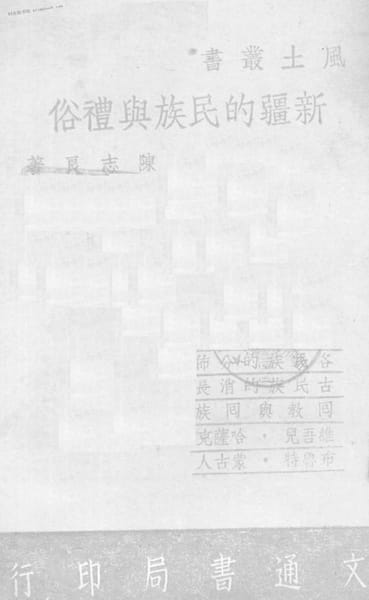 風土叢書
新疆的民族與禮俗
陳志良著
各民族的分佈
古民族的消長
回教與回族
維吾兒・哈薩克
布魯特・蒙古人
文通書局印行